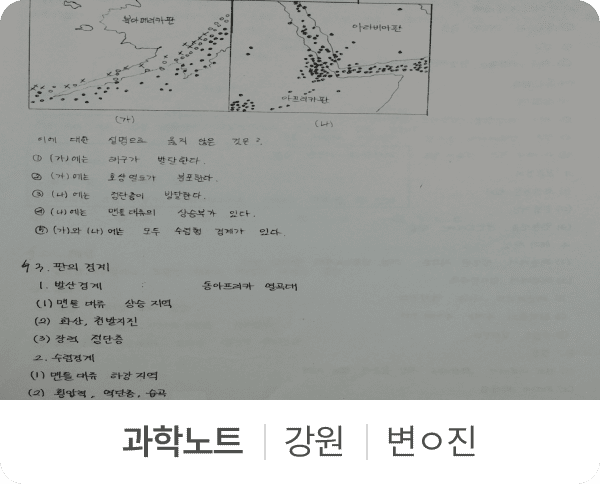 북아메리카판
아라비아판
아프리카판
(가)
(나)
이에 대한 설명으로 옳지 않은 것은?
① (가)에는 해구가 발달한다.
② (가)에는 호상열도가 분포한다.
③ (나)에는 정단층이 발달한다.
④ (나)에는 맨틀대류의 상승부가 있다.
⑤ (가)와 (나)에는 모두 수렴형 경계가 있다.
§ 3. 판의 경계
1. 발산경계 동아프리카 열곡대
(1) 맨틀 대류 상승 지역
(2) 화산, 천발지진
(3) 장력 정단층
2. 수렴경계
(1) 맨틀 대류 하강 지역
(2) 횡압력, 역단층, 습곡
과학노트 | 강원 | 변ㅇ진